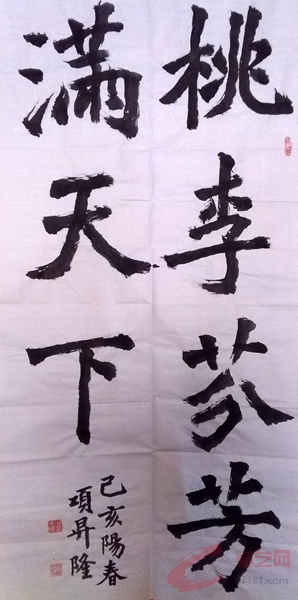 桃李芬芳
满天下
己亥陽春
項昇隆